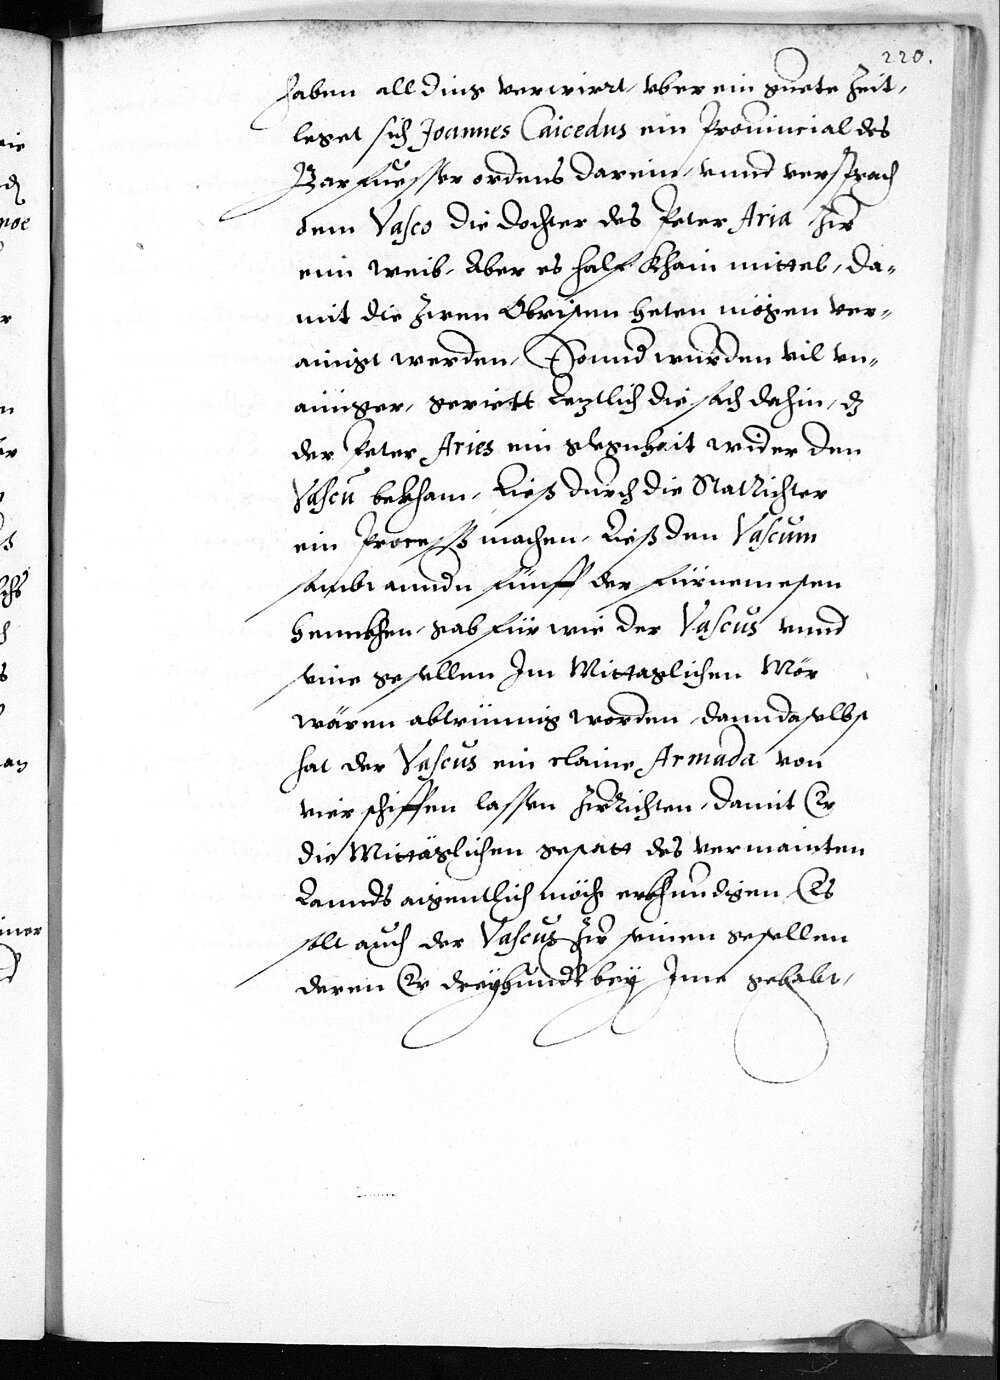 220.
haben all ding verwirrt, vber ein guete Zeit,
leget sich Joannes Caicedus ein Prouincial des
Barfuesser ordens darein, vnnd versprach
dem Vasco die dochter des Peter Aria Zur
ein weib, Aber es half khain mittel, da-
mit die Zwen Obristen heten mögen ver-
ainigt werden, Sonnd wurden vil vn-
ainiger, geriett Letztlich die sach dahin, dz
der Peter Aries ein glegnhait wider den
Vascu bekham, Ließ durch die Statrichter
ein Process machen, Ließ den Vascum
sambt anndn fünff der fürnemesten
hennkhen, gab für wie der Vascus vnnd
seine gesellen Im Mittaglichen Mör
wären abtrünnig worden, dann daselbst
hat der Vascus ein claine Armada von
vier schiffen lassen Zurichten, damit Er
die Mittäglichen gestatt des vermainten
Lannds aigentlich möcht erkhundigen, Es
solt auch der Vascus Zu seinen gesellen
deren Er dreyhundt bey Ime gehabt,